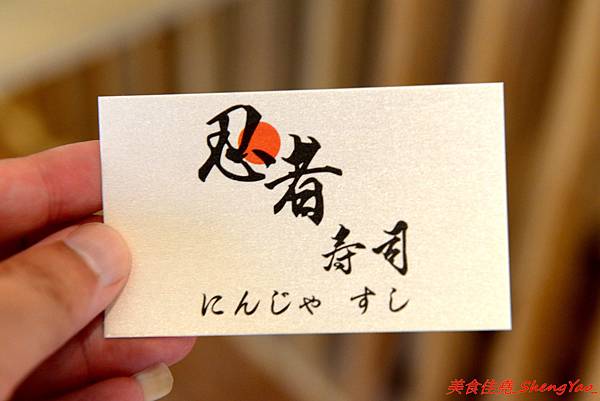 忍者
寿司
にんじゃ すし
美食佳魂 ShengYao